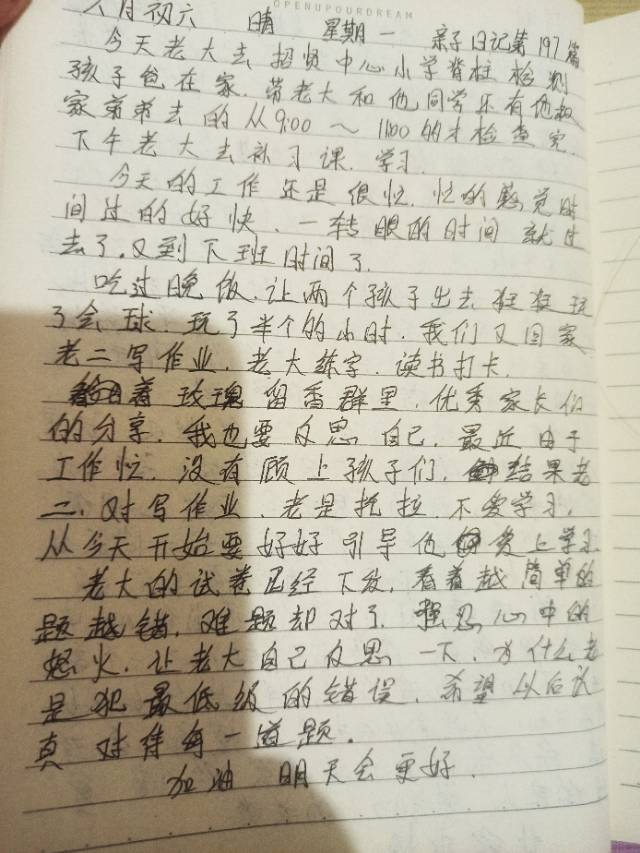 OPENUPYOURDREAM
六月初六 晴 星期一 亲子日记第197篇
今天老大去招贤中心小学脊柱检测
孩子爸在家.带老大和他同学还有他叔
家弟弟去的从9:00～11:00的才检查完.
下午老大去补习课.学习.
今天的工作还是很忙.忙的感觉时
间过的好快.一转眼的时间就过
去了.又到下班时间了.
吃过晚饭.让两个孩子出去狂狂玩
了会球.玩了半个的小时.我们又回家
老二写作业.老大练字.读书打卡.
看着玫瑰留香群里.优秀家长们
的分享.我也要反思自己.最近由于
工作忙.没有顾上孩子们.结果老
二.对写作业.老是托拉.不爱学习.
从今天开始要好好引导他爱上学习.
老大的试卷已经下发.看着越简单的
题越错.难题却对了.强忍心中的
怒火.让老大自己反思一下.为什么老
是犯最低级的错误.希望以后认
真对待每一道题.
加油 明天会更好.